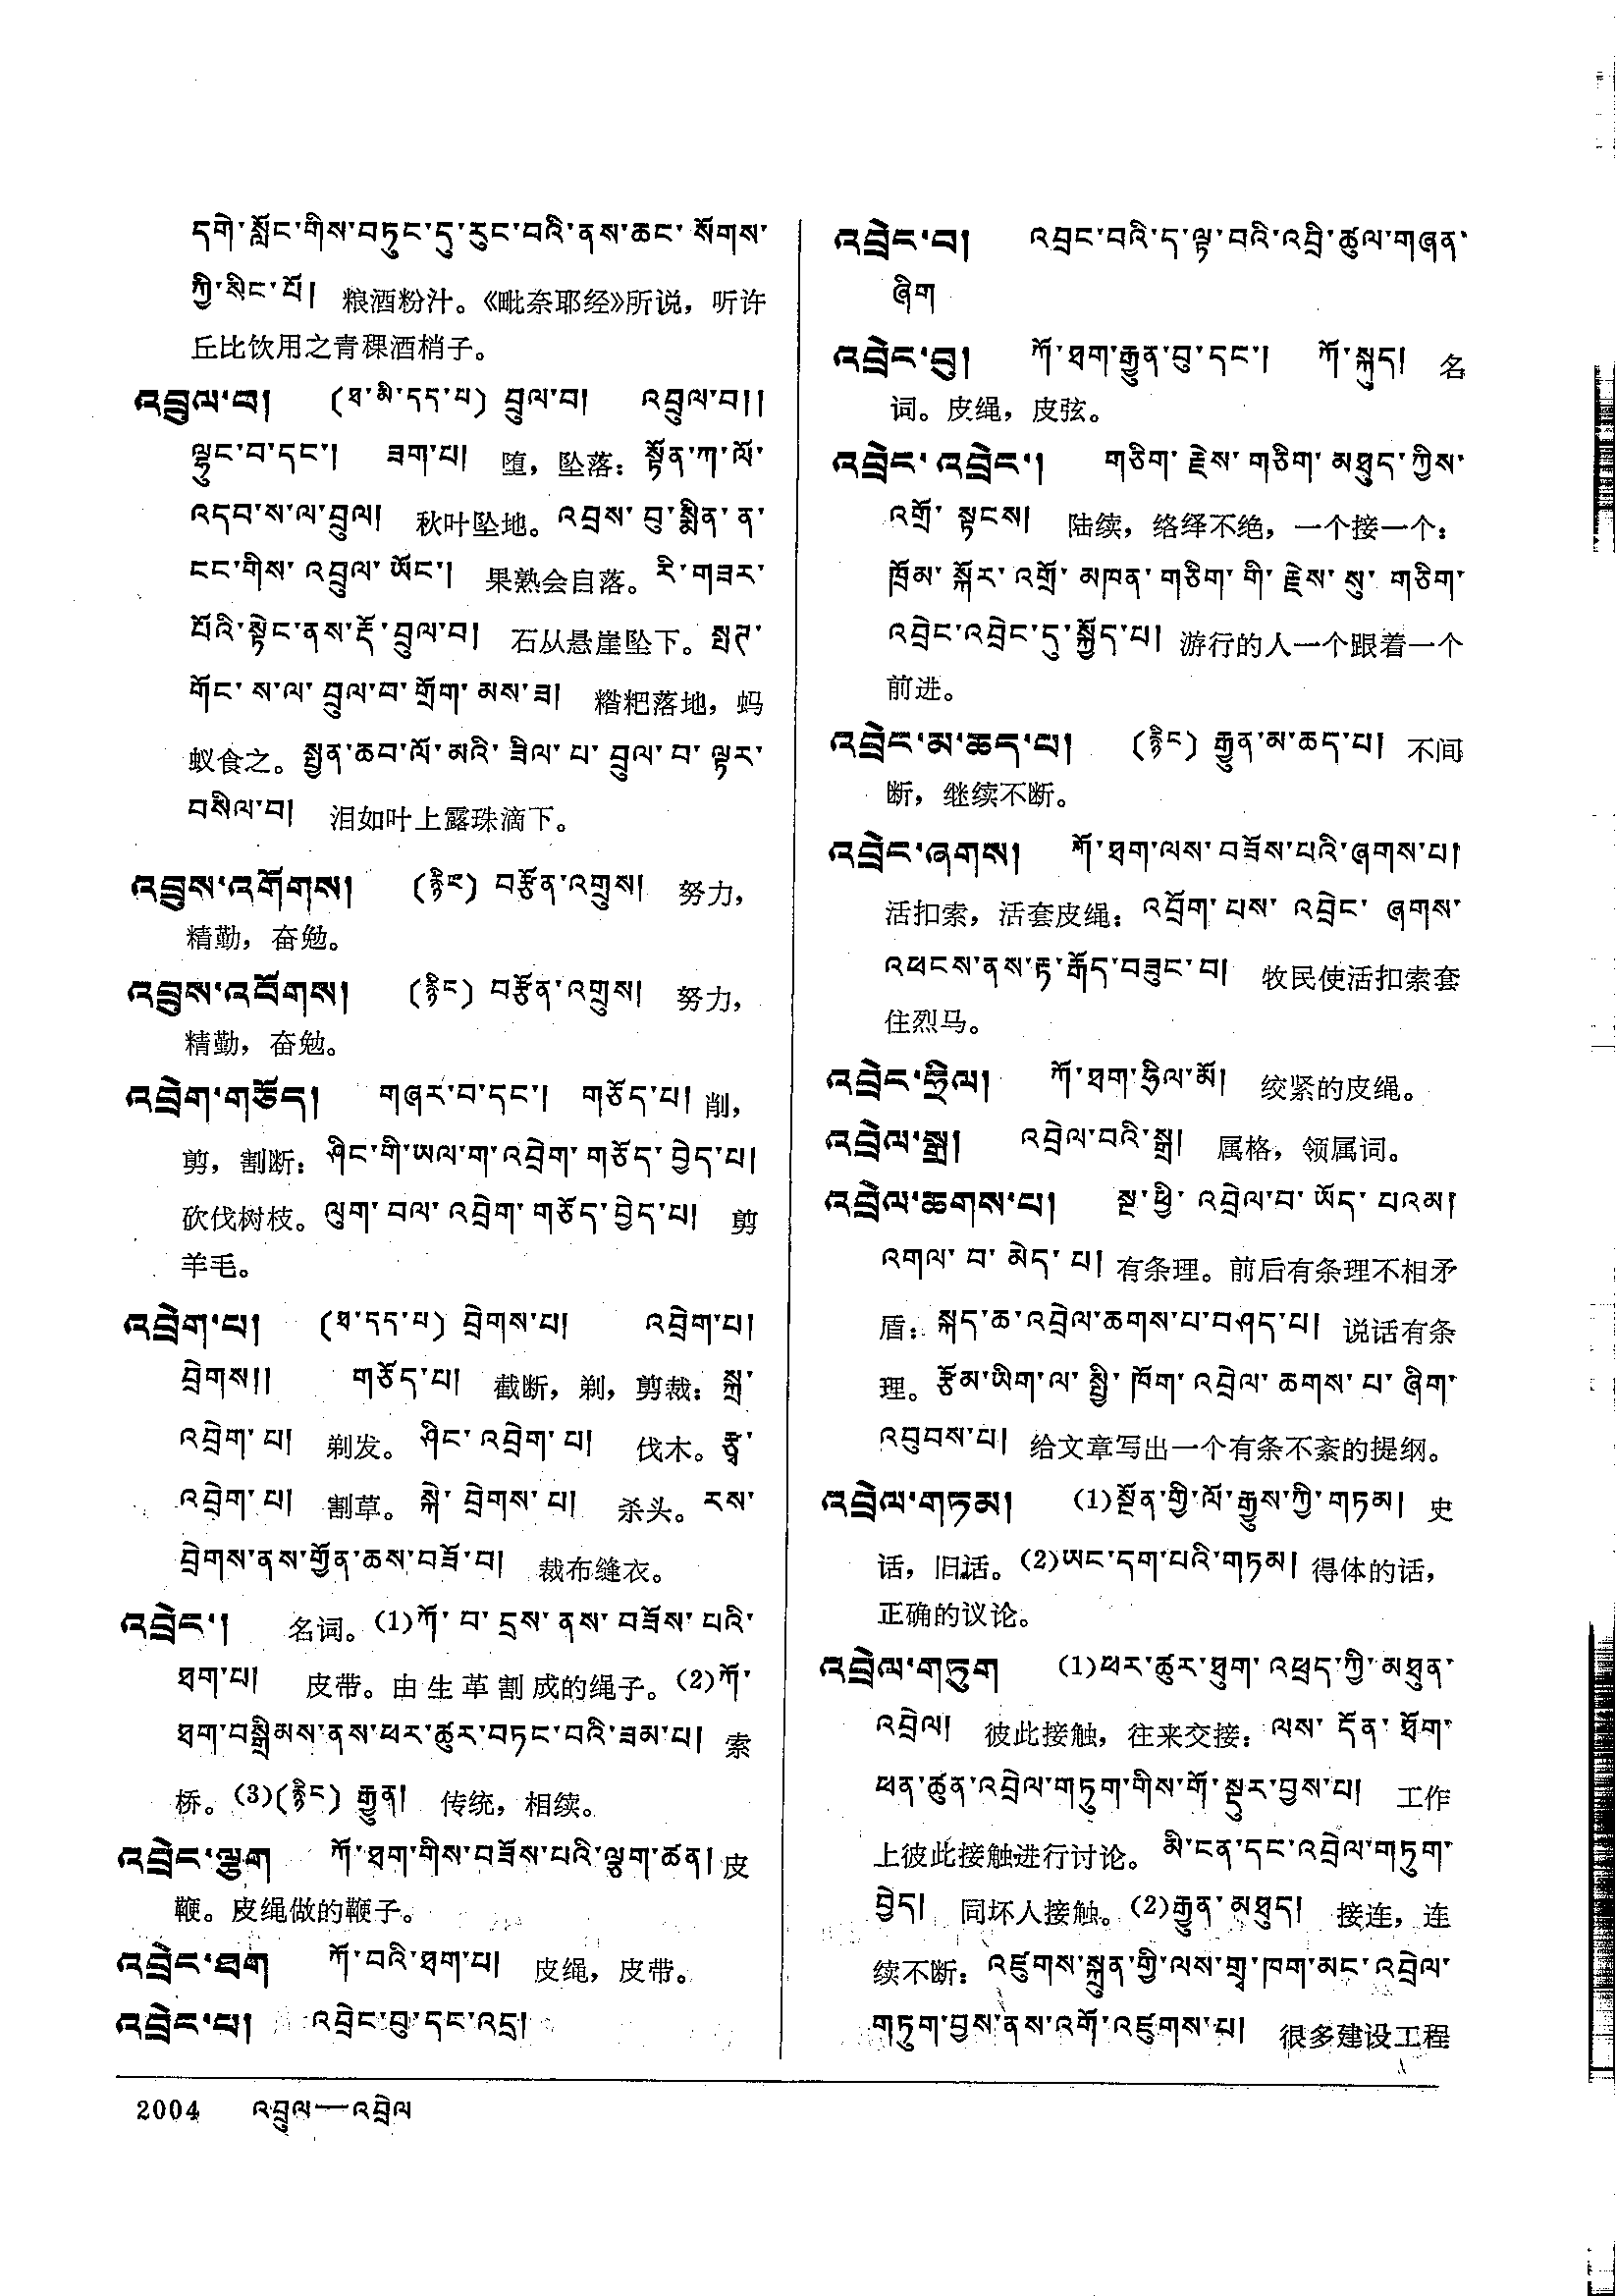 དགེ་སློང་གིས་བཏུང་དུ་རུང་བའི་ནས་ཆང་སོགས་
ཀྱི་སིང་པོ། 粮酒粉汁。《毗奈耶经》所说，听许
丘比饮用之青稞酒梢子。
འབྲུལ་བ། (ཐ་མི་དད་པ) བྲུལ་བ། འབྲུལ་བ།།
ལྷུང་བ་དང་། ཟག་པ། 堕，坠落：སྟོན་ཀ་ལོ་
འདབ་ས་ལ་བྲུལ། 秋叶坠地。འབྲས་བུ་སྨིན་ན་
ངང་གིས་འབྲུལ་ཡོང་། 果熟会自落。རི་གཟར་
པོའི་སྟེང་ནས་རྡོ་བྲུལ་བ། 石从悬崖坠下。སྤཊ་
གོང་ས་ལ་བྲུལ་བ་གྲོག་མས་ཟ། 糌粑落地，蚂
蚁食之。སྤྱན་ཆབ་ལོ་མའི་ཟིལ་པ་བྲུལ་བ་ལྟར་
བསིལ་བ། 泪如叶上露珠滴下。
འབྲུས་འགོགས། (རྙིང) བརྩོན་འགྲུས། 努力，
精勤，奋勉。
འབྲུས་འབོགས། (རྙིང) བརྩོན་འགྲུས། 努力，
精勤，奋勉。
འབྲེག་གཅོད། གཞར་བ་དང་། གཅོད་པ། 削，
剪，割断：ཤིང་གི་ཡལ་ག་འབྲེག་གཅོད་བྱེད་པ།
砍伐树枝。ལུག་བལ་འབྲེག་གཅོད་བྱེད་པ། 剪
羊毛。
འབྲེག་པ། (ཐ་དད་པ) བྲེགས་པ། འབྲེག་པ།
བྲེགས།། གཅོད་པ། 截断，剃，剪裁：སྐྲ་
འབྲེག་པ། 剃发。ཤིང་འབྲེག་པ། 伐木。རྩྭ་
འབྲེག་པ། 割草。སྐེ་བྲེགས་པ། 杀头。རས་
བྲེགས་ནས་གྱོན་ཆས་བཟོ་བ། 裁布缝衣。
འབྲེང་། 名词。(1)ཀོ་བ་དྲས་ནས་བཟོས་པའི་
ཐག་པ། 皮带。由生革割成的绳子。(2)ཀོ་
ཐག་བསྒྲིམས་ནས་ཕར་ཚུར་བཏང་བའི་ཟམ་པ། 索
桥。(3)(རྙིང) རྒྱུན། 传统，相续。
འབྲེང་ལྕག ཀོ་ཐག་གིས་བཟོས་པའི་ལྕག་ཚན། 皮
鞭。皮绳做的鞭子。
འབྲེང་ཐག ཀོ་བའི་ཐག་པ། 皮绳，皮带。
འབྲེང་པ། འབྲེང་བུ་དང་འདྲ།
འབྲེང་བ། འབྲང་བའི་ད་ལྟ་བའི་འབྲི་ཚུལ་གཞན་
ཞིག
འབྲེང་བུ། ཀོ་ཐག་རྒྱུན་བུ་དང་། ཀོ་སྐུད། 名
词。皮绳，皮弦。
འབྲེང་འབྲེང་། གཅིག་རྗེས་གཅིག་མཐུད་ཀྱིས་
འགྲོ་སྟངས། 陆续，络绎不绝，一个接一个：
ཁྲོམ་སྐོར་འགྲོ་མཁན་གཅིག་གི་རྗེས་སུ་གཅིག་
འབྲེང་འབྲེང་དུ་སྐྱོད་པ། 游行的人一个跟着一个
前进。
འབྲེང་མ་ཆད་པ། (རྙིང) རྒྱུན་མ་ཆད་པ། 不间
断，继续不断。
འབྲེང་ཞགས། ཀོ་ཐག་ལས་བཟོས་པའི་ཞགས་པ།
活扣索，活套皮绳：འབྲོག་པས་འབྲེང་ཞགས་
འཕངས་ནས་རྟ་རྒོད་བཟུང་བ། 牧民使活扣索套
住烈马。
འབྲེང་ཧྲིལ། ཀོ་ཐག་ཧྲིལ་མོ། 绞紧的皮绳。
འབྲེལ་སྒྲ། འབྲེལ་བའི་སྒྲ། 属格，领属词。
འབྲེལ་ཆགས་པ། སྔ་ཕྱི་འབྲེལ་བ་ཡོད་པའམ།
འགལ་བ་མེད་པ། 有条理。前后有条理不相矛
盾：སྐད་ཆ་འབྲེལ་ཆགས་པ་བཤད་པ། 说话有条
理。རྩོམ་ཡིག་ལ་སྤྱི་ཁོག་འབྲེལ་ཆགས་པ་ཞིག་
འབུབས་པ། 给文章写出一个有条不紊的提纲。
འབྲེལ་གཏམ། (1)སྔོན་གྱི་ལོ་རྒྱུས་ཀྱི་གཏམ། 史
话，旧话。(2)ཡང་དག་པའི་གཏམ། 得体的话，
正确的议论。
འབྲེལ་གཏུག (1)ཕར་ཚུར་ཐུག་འཕྲད་ཀྱི་མཐུན་
འབྲེལ། 彼此接触，往来交接：ལས་དོན་ཐོག་
ཕན་ཚུན་འབྲེལ་གཏུག་གིས་གོ་སྡུར་བྱས་པ། 工作
上彼此接触进行讨论。མི་ངན་དང་འབྲེལ་གཏུག་
བྱེད། 同坏人接触。(2)རྒྱུན་མཐུད། 接连，连
续不断：འཛུགས་སྐྲུན་གྱི་ལས་གྲྭ་ཁག་མང་འབྲེལ་
གཏུག་བྱས་ནས་འགོ་འཛུགས་པ། 很多建设工程
2004 འབྲུལ—འབྲེལ